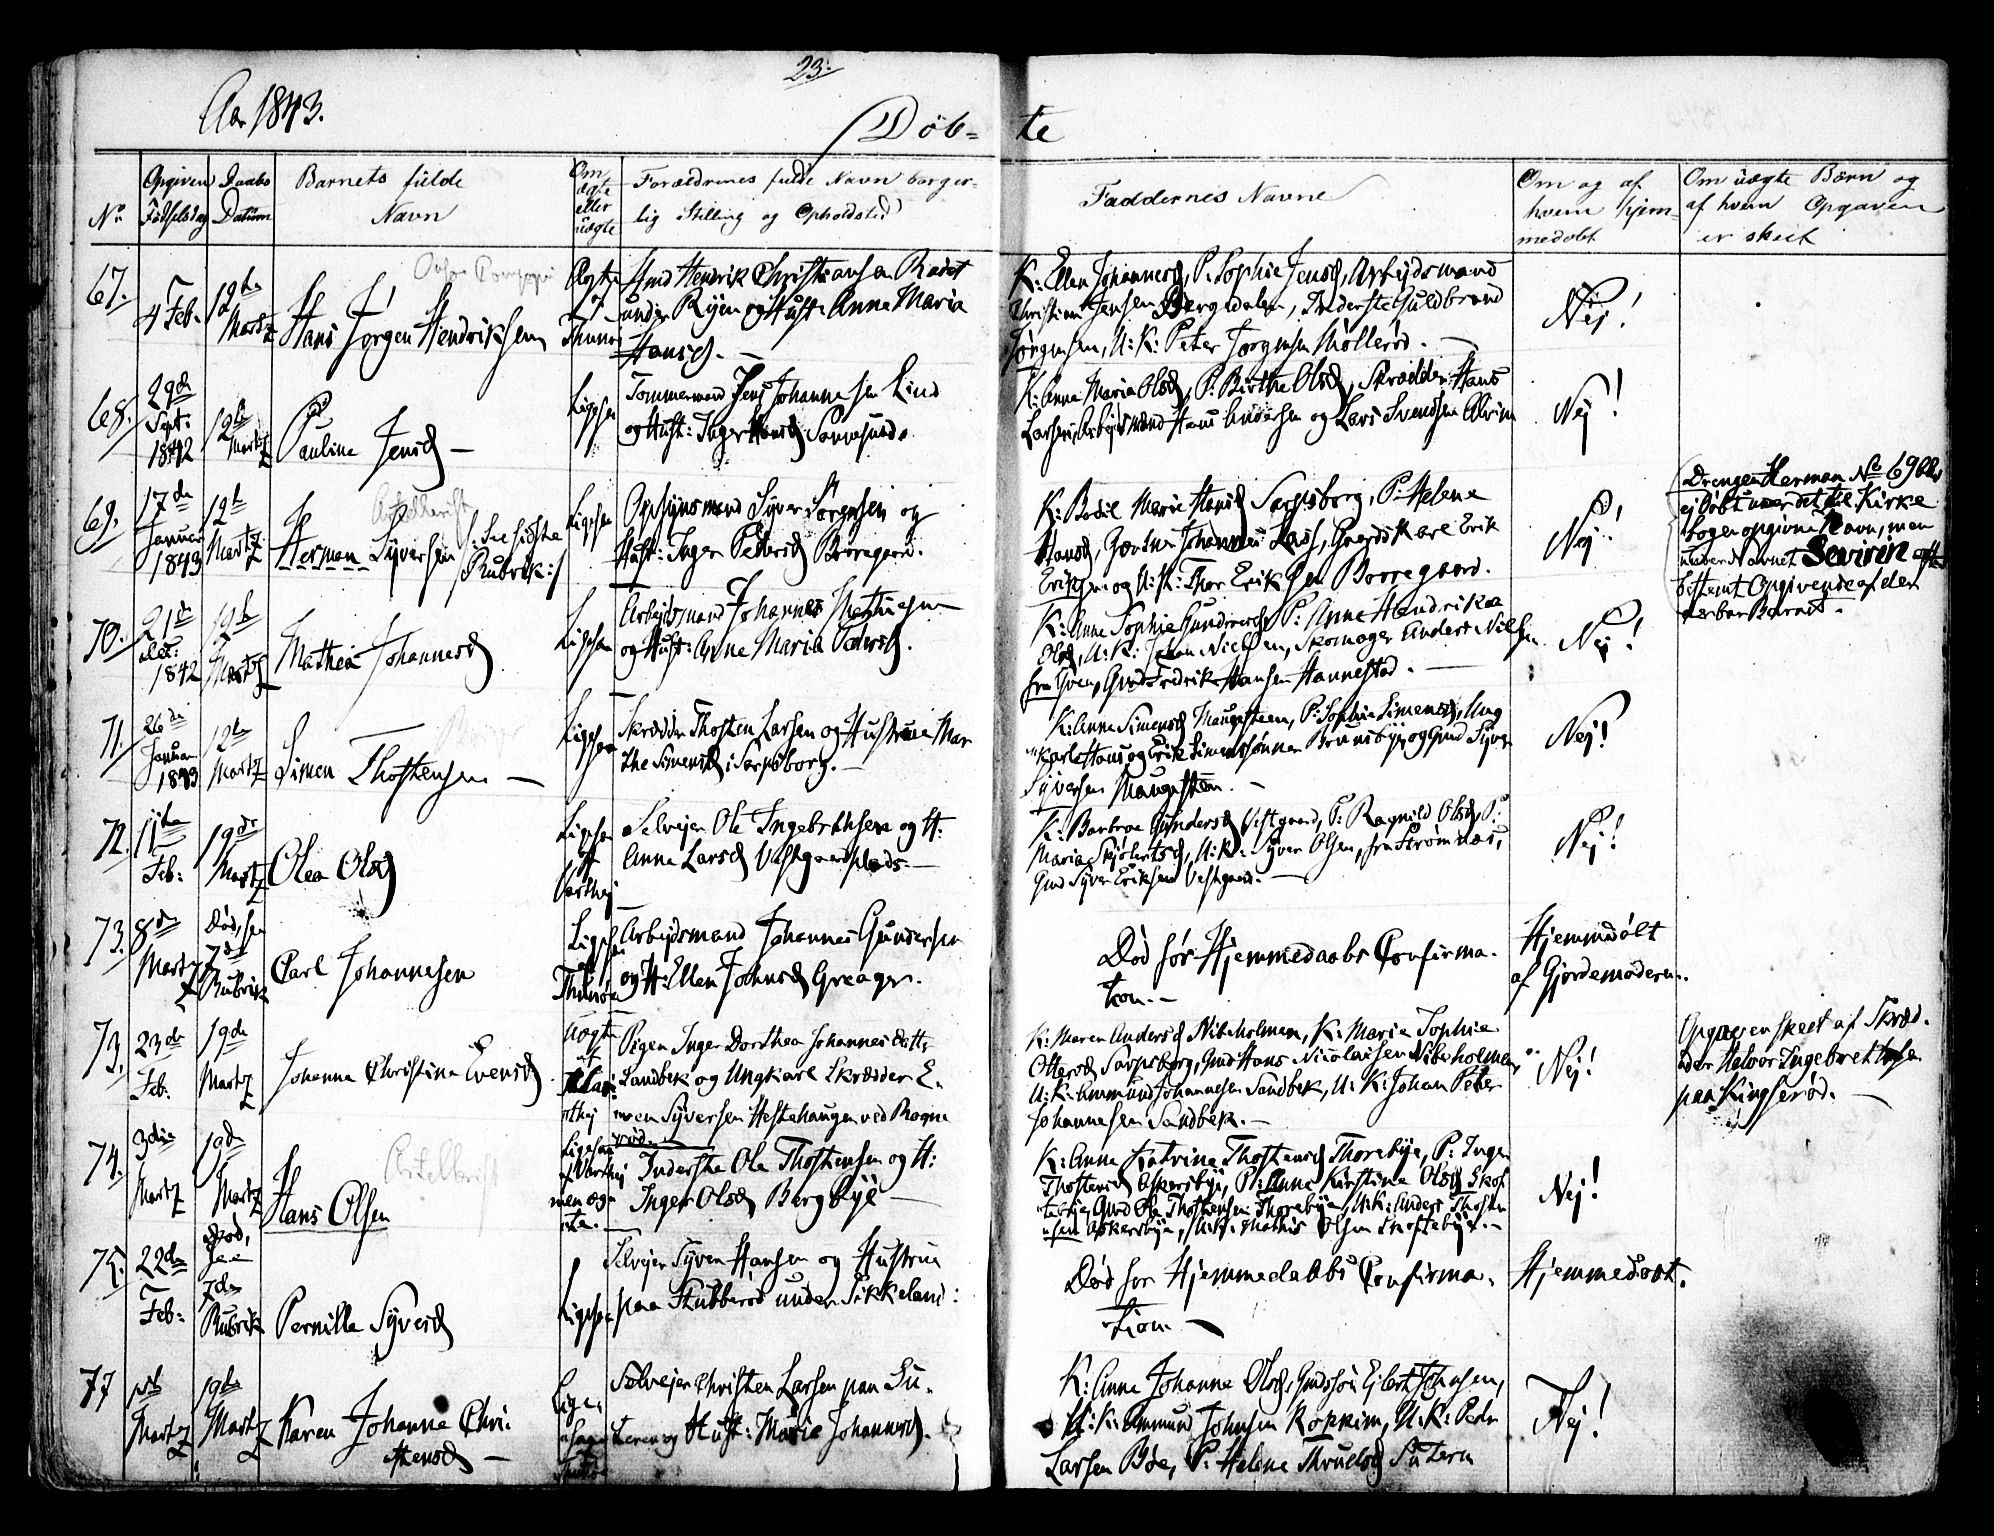 23.
Aar 1843.
Døb-
te
No
Opgiven Fødselsdag
Daabs Datum
Barnets fulde Navn
Om ægte eller uægte
Forældrenes fulde Navn borger-
lig Stilling og Opholdsted
Faddernes Navne
Om og af
hvem hjem-
medøbt
Om uægte Børn og
af hvem Opgaven
er skeet
67.
4 Feb.
12te
Martz
Hans Jørgen Hendriksen
Ægte
af
Thunø
Gmd Hendrik Christiansen Rødet
under Ryen og Hust: Anne Maria
Hansd. -
K: Ellen Johannesd, P. Sophie Jensd, Arbeidsmand
Christian Jensen Bergsdalen, Inderste Guldbrand
Jørgensen, U:K: Peter Jørgensen Møllerød. -
Nej!
68.
29de
Sept.
1842
12te
Martz
Pauline Jensd -
Ligesaa
Tømmermand Jens Johannesen Lind
og Hust: Inger Hansd Sannesund.
K: Anna Maria Olsd, P: Birthe Olsd, Skrædder Hans
Larsen, Arbeidsmænd Hans Andersen og Lars Svendsen Alvim
Nej!
69.
17de
Januar
1843
12te
Martz
Herman Syversen
/: See sidste
Rubrik:/
Ligesaa
Opsynsmand Syver Jørgensen og
Hust: Inger Pedersd Borregaard.
K: Bodil Marie Hansd Sarpsborg, P: Helene
Hansd, Gartner Johannes Lass, Gaardskarl Erik
Eriksen og U:K: Thor Eriksen Borregaard.
Nej!
Drengen Herman No 69 blev
ej døbt under det til Kirke
bogen opgivne Navn, men
under Navnet Severin efter
bestemt Opgivende af den
der bar Barnet.
70.
21de
1842
12te
Martz
Mathea Johannesd
Ligesaa
Arbejdsmand Johannes Mathiesen
og Hust: Anne Maria Larsd.
K: Anne Sophie Gundersd, P: Anne Hendrikke
Olsd, U:K: Johan Nielsen, Skomager Anders Nielsen
fra Hven, Gmd Fredrik Hansen Hannestad. -
Nej!
71.
26de
Januar
1843
12te
Martz
Simen Thostensen -
Ligesaa
Skrædder Thosten Larsen og Hustrue Mar
the Simensd i Sarpsborg. -
K: Anne Simensd Haugesteen, P: Sophie Simensd, Ung
karle Hans og Erik Simenssønner Brunsbye og Gmd Syver
Syversen Haugesteen. -
Nej!
72.
11te
Feb:
19de
Martz
Olea Olsd
Ligesaa
af
Varthej
Selvejer Ole Ingebrethsen og H:
Anne Larsd Vestgaardsplads -
K: Barbroe Gundersd Vestgaard, P: Ragnild Olsd, P:
Maria Skjølertsd, U:K: Syver Olsen, fra Strømnæs,
Gmd Syver Eriksen Vestgaard. -
Nej!
73.
8de
Martz
Død, see
7de
Rubrik
Carl Johannesen
Ligesaa
af
Thunøe
Arbejdsmand Johannes Gundersen
og H: Ellen Johnsd Greager.
Død før Hjemmedaabs Confirma-
tion. -
Hjemmedøbt
af Gjordemoderen.
73.
23de
Feb.
19de
Martz
Johanna Christina Evensd
Uægte
af
Pigen Inger Dorthea Johannesdatt:
Sandbek og Ungkarl Skrædder E-
ven Syversen Hestehaugen ved Rogne
rød.
K: Maren Andersd Nibeholmen, K: Maria Sophie
Ottersd Sarpsborg, Gmd Hans Nicolaisen Nibeholmen,
U:K: Ammund Johannesen Sandbek, U:K: Johan Peter
Johannesen Sandbek. -
Nej!
Opgaven skeet af Skræd-
der Halvor Ingebrethsen
paa Kingserød. -
74.
3die
Martz
19de
Martz
Hans Olsen
Ligesaa
af Varthej
men æg-
te. -
Inderste Ole Thostensen og H:
Inger Olsd Bergbye -
K: Anne Katrine Thostensd Thorebye, P: Inger
Thostensd Askersbye, P: Anne Kirstine Olsd Skof
tebye, Gmd Ole Thostensen Thorebye, U:K: Anders Thosten
sen Askersbye, U:K: Mathis Olsen Skoftebye. -
Nej!
75.
22de
Feb:
Død,
see
7de
Rubrik
Pernille Syversd
Ligesaa
Selvejer Syver Hansen og Hustrue
paa Stubberød under Sikkeland:
Død før Hjemmedaabs Confirma-
tion. -
Hjemmedøbt.
77
1ste
Martz
19de
Martz
Karen Johanne Chri-
stensd -
Lige-
saa
Selvejer Christen Larsen paa Su-
teren og Hust: Maria Johannesd.
K: Anne Johanne Olsd, Gmdssøn Ejlert Johnsen,
U:K: Ammund Johnsen Kopkim, U:K: Peder
Larsen Bøe, P: Helene Thruelsd Sutern
Nej!